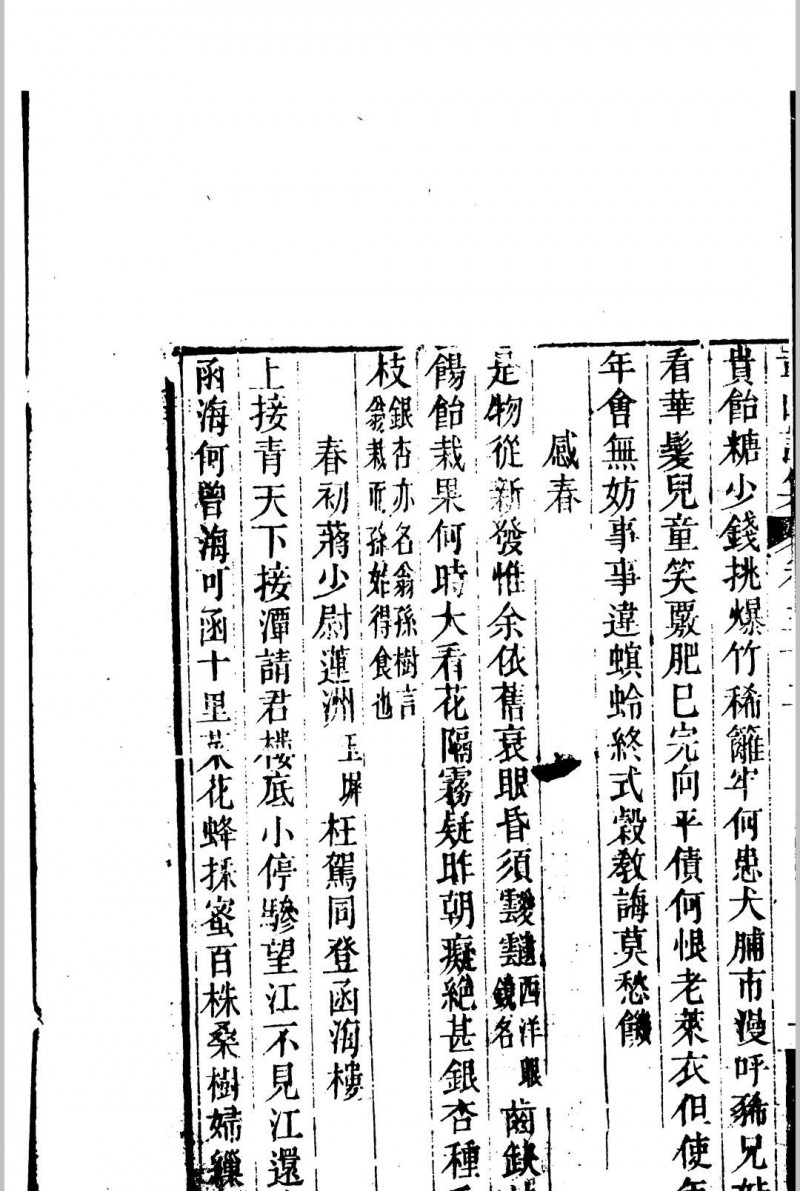 貴飴糖少錢挑爆竹稀籬牢何患犬脯市漫呼豨兄
看華髮兒童笑覈肥已完向平債何恨老萊衣但使
年會無妨事事違螟蛉終式穀敎誨莫愁饑
感春
是物從新發惟余依舊衰眼昏須靉靆西洋眼鏡名齒缺
餳飴栽果何時大看花隔霧疑昨朝癡絶甚銀杏種
枝銀杏亦名翁孫樹言翁栽而孫始得食也
春初蔣少尉蓮洲玉墀枉駕同登函海樓
上接青天下接潭請君樓底小停驂望江不見江還
函海何曾海可函十里菜花蜂採蜜百株桑樹婦繅